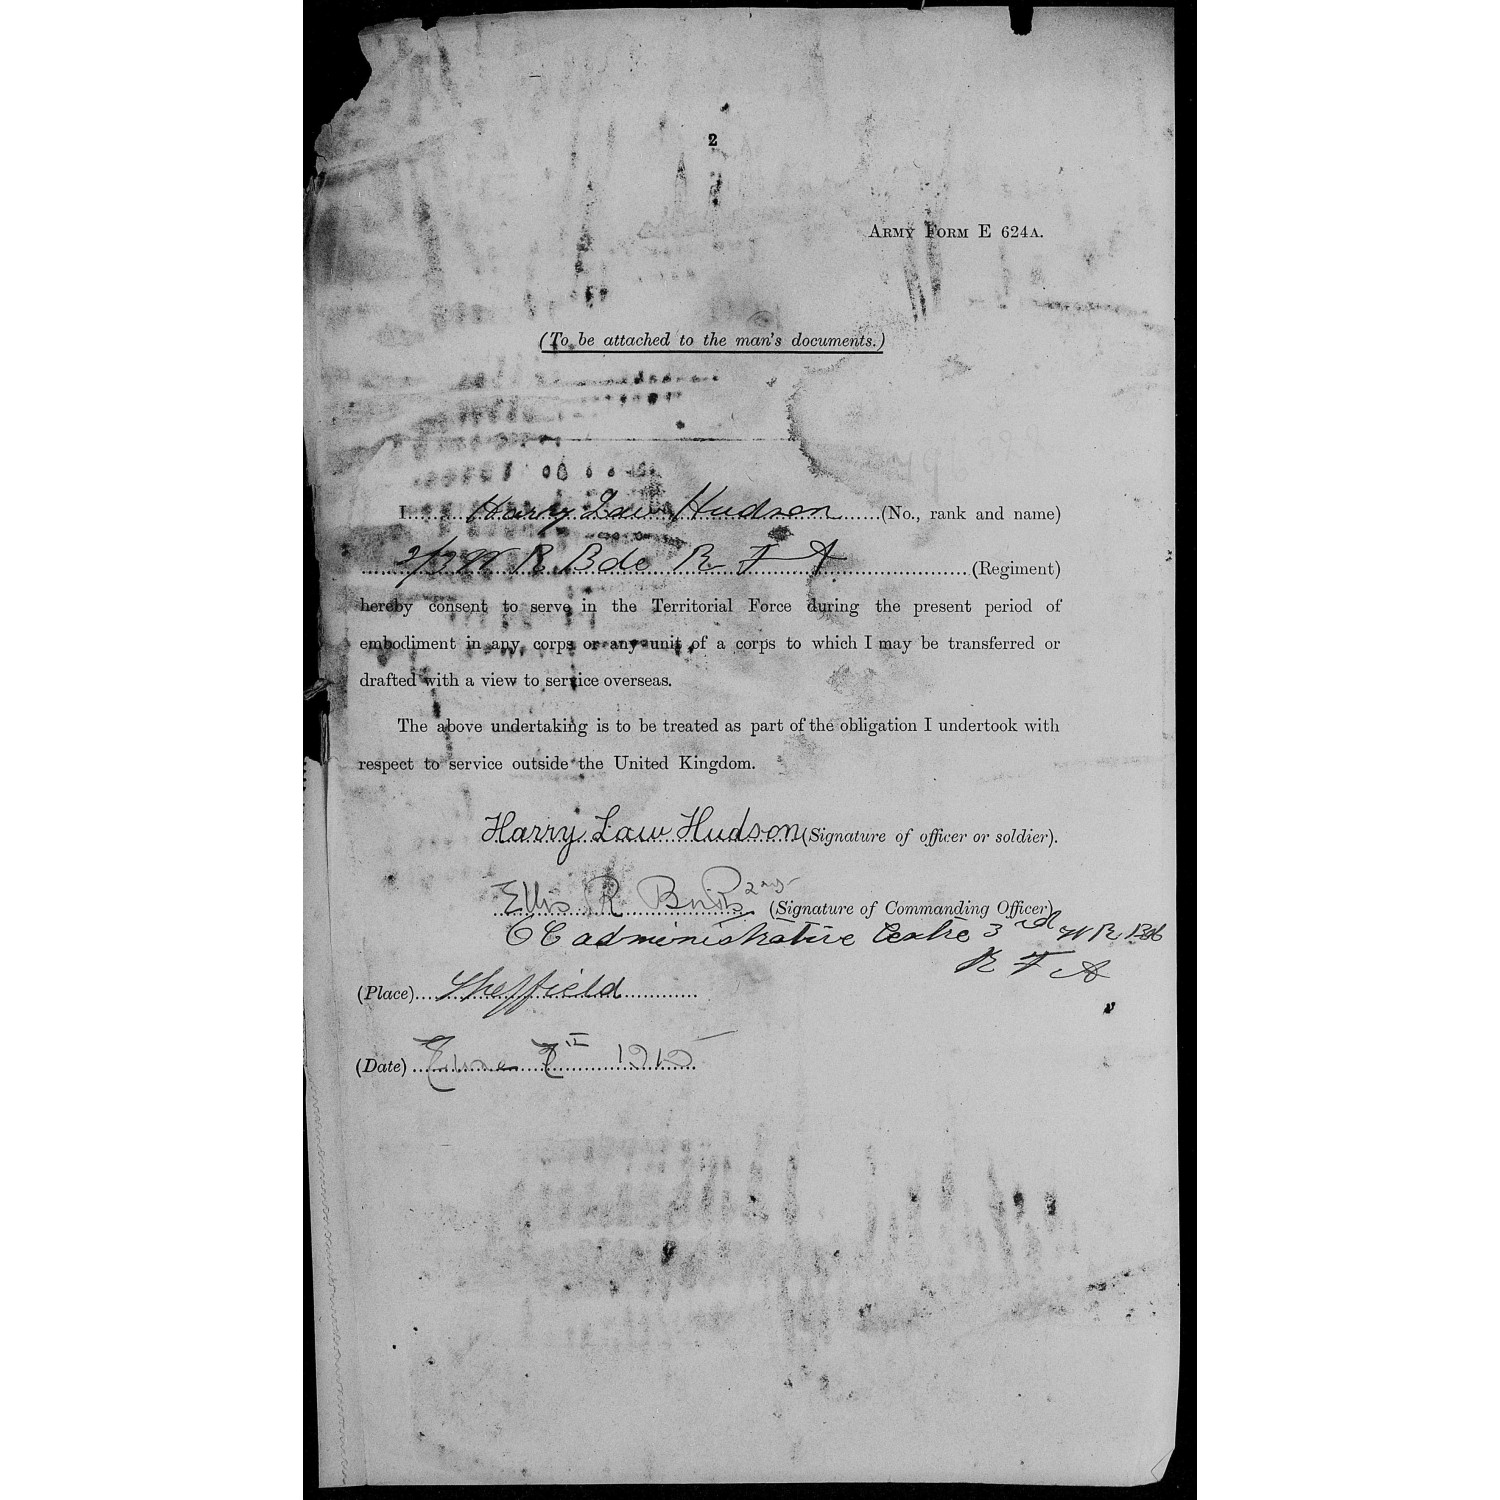 2
ARMY FORM E 624A.
(To be attached to the man's documents.)
I Harry Law Hudson (No., rank and name)
2/3 W R Bde R F A (Regiment)
hereby consent to serve in the Territorial Force during the present period of
embodiment in any corps or any unit of a corps to which I may be transferred or
drafted with a view to service overseas.
The above undertaking is to be treated as part of the obligation I undertook with
respect to service outside the United Kingdom.
Harry Law Hudson (Signature of officer or soldier).
Ellis R (Signature of Commanding Officer)
OC administrative Centre 3rd W R Bde
R F A
(Place) Sheffield
(Date) June 1915